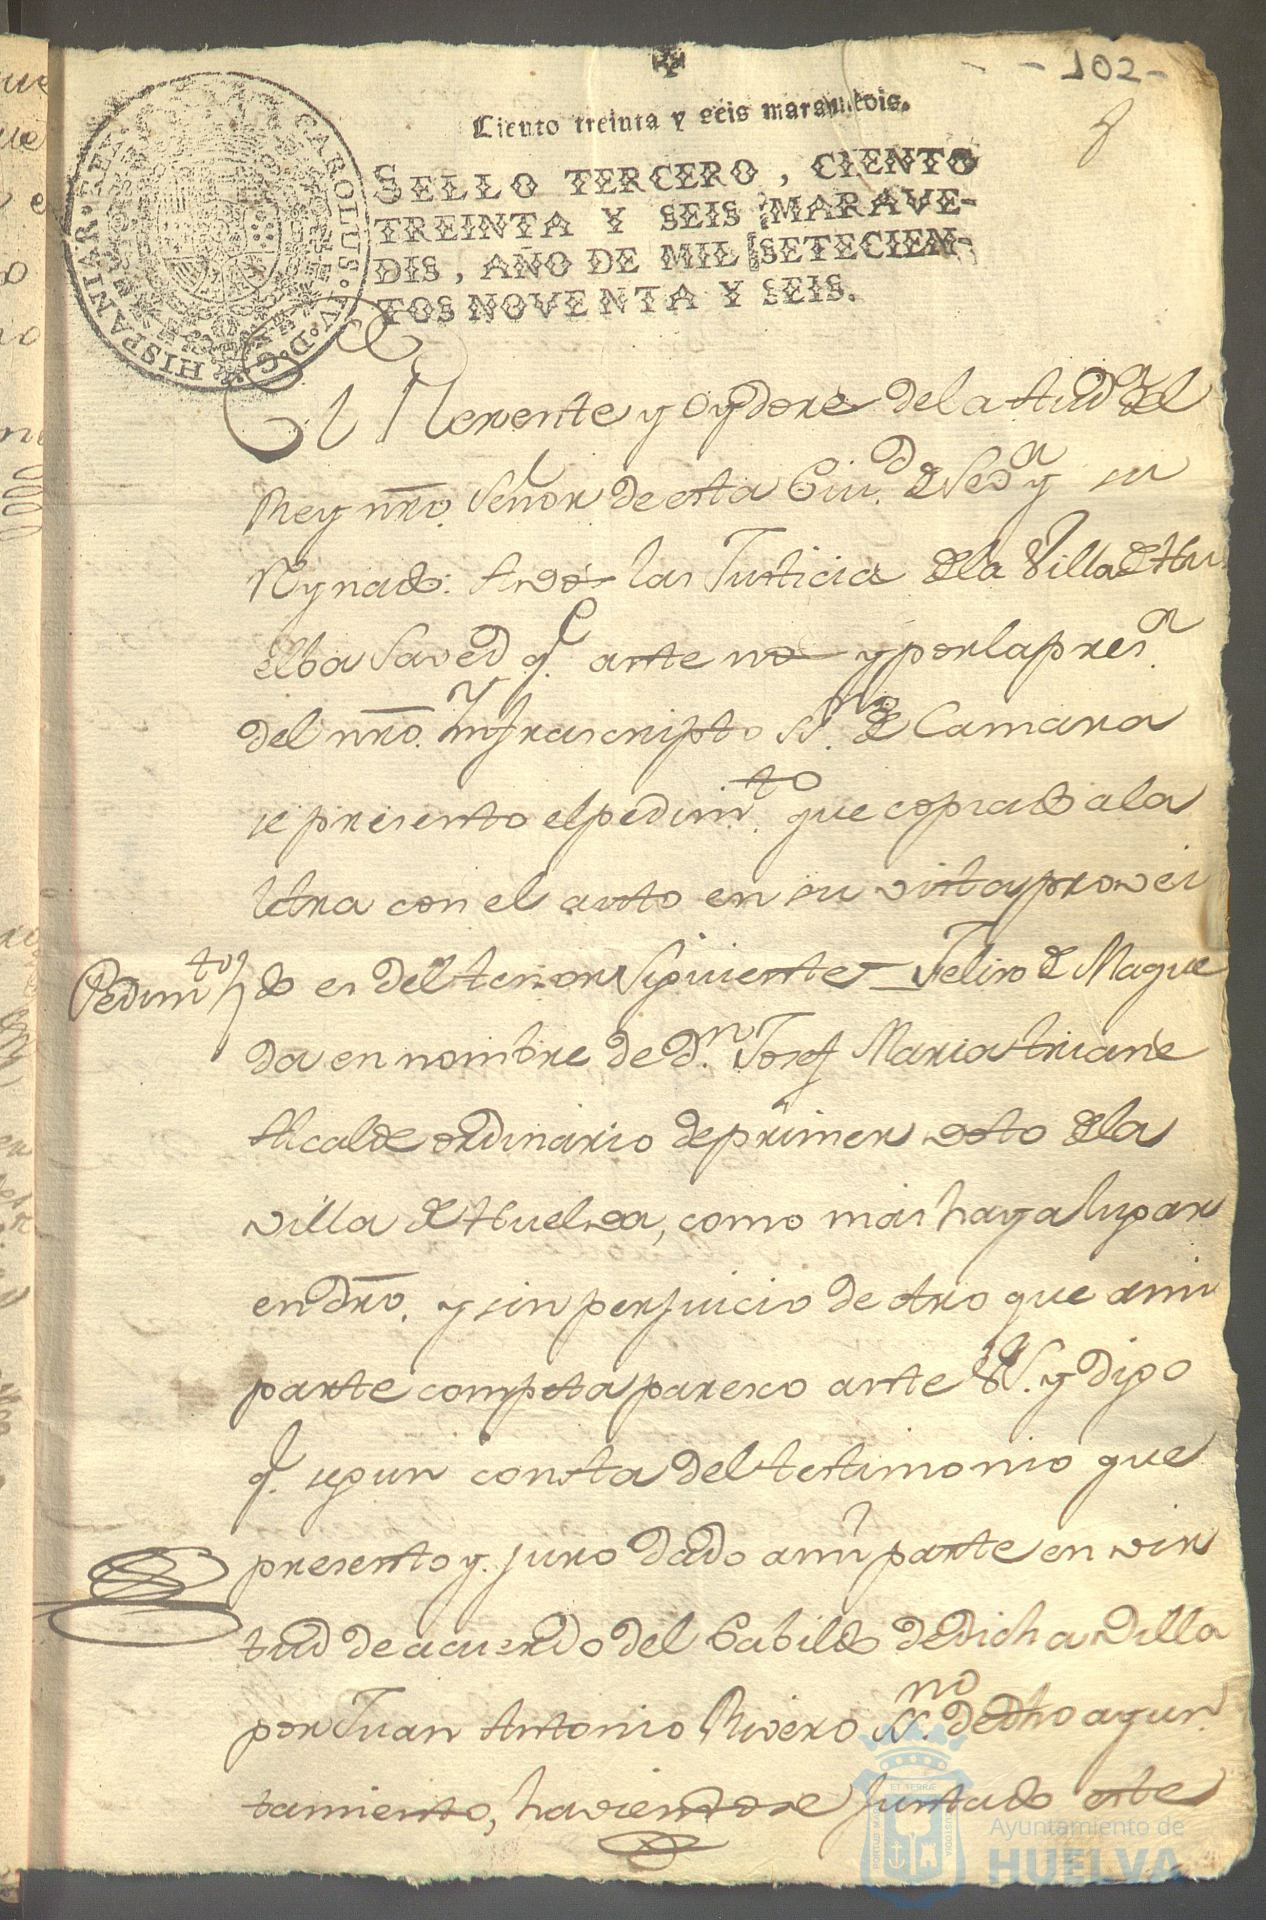 -102-
Ciento treinta y seis maravedis.
SELLO TERCERO, CIENTO
TREINTA Y SEIS MARAVE-
DIS, AÑO DE MIL SETECIEN-
TOS NOVENTA Y SEIS.
CAROLUS·IV·D·G·HISPANIAR·REX·
El Rexente y Oydores de la Aud.a del
Rey nrō. Señor de esta Ciu.d de Sev.a y su
Reynado: A vos las Justicia de la Villa de Hu
elba Saved q.e ante nos y por la pres.a
del nrō. Infrascripto SS.no de Camara
se presento el pedim.to que copiado a la
letra con el auto en su vista provei
Pedim.to do es del tenor Siguiente = Felix de Maque
da en nombre de D.n Josef Maria Triane
Alcalde ordinario de primer voto de la
villa de Huelva, como mas haya lugar
en drō. y sin perjuicio de otro que a mi
parte competa paresco ante V.S. y digo
q.e segun consta del testimonio que
presento y juro dado a mi parte en vir
tud de acuerdo del Cabildo de dicha villa
por Juan Antonio Rivero SS.no de dho ayun
tamiento, haviendose Juntado este
Ayuntamiento de
HUELVA